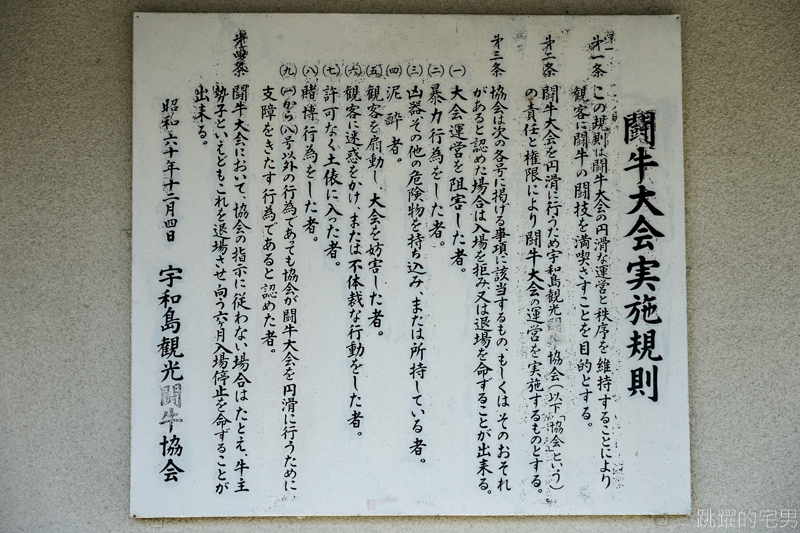 闘牛大会実施規則
第一条 この規則は闘牛大会の円滑な運営と秩序を維持することにより
観客に闘牛の闘技を満喫さすことを目的とする。
第二条 闘牛大会を円滑に行うため宇和島観光闘牛協会(以下「協会という)
の責任と権限により闘牛大会の運営を実施するものとする。
第三条 協会は次の各号に掲げる事項に該当するもの、もしくは、そのおそれ
があると認めた場合は入場を拒み又は退場を命ずることが出来る。
(一) 大会運営を阻害した者。
(二) 暴力行為をした者。
(三) 凶器その他の危険物を持ち込み、または所持している者。
(四) 泥酔者。
(五) 観客を扇動し、大会を妨害した者。
(六) 観客に迷惑をかけ、または不体裁な行動をした者。
(七) 許可なく土俵に入った者。
(八) 賭博行為をした者。
(九) (一)から(八)号以外の行為であっても協会が闘牛大会を円滑に行うために
支障をきたす行為であると認めた者。
第四条 闘牛大会において、協会の指示に従わない場合はたとえ、牛主
勢子といえどもこれを退場させ向う六ヶ月入場停止を命ずることが
出来る。
昭和六十年十二月四日 宇和島観光闘牛協会
跳躍的宅男